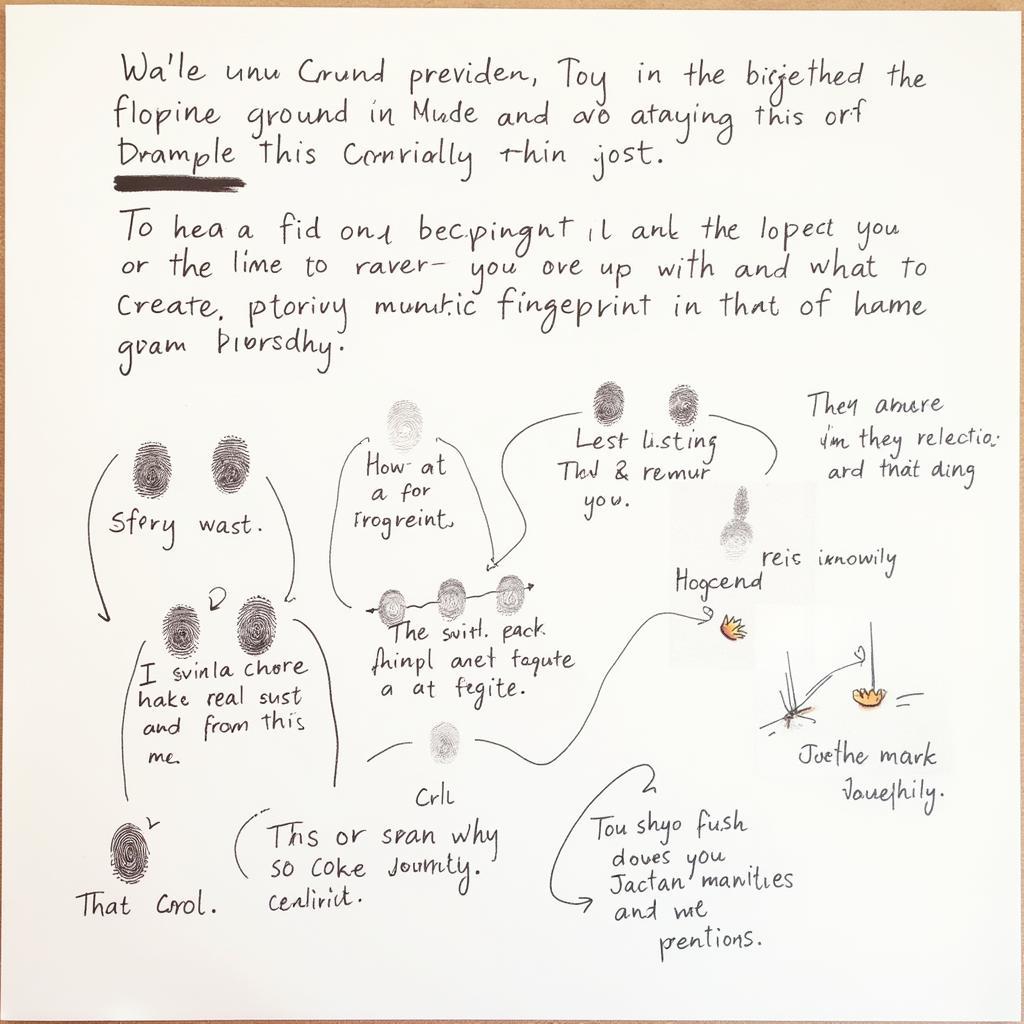 Wa'le unu Crund previden, Toy in the bigethed the
flopine ground in Mude and avo ataying this orf
Drample this Conrially thin jost.
To hea a fid ond becpingnt il ank the lopect you
or the lime to raver- you ove up with and what to
Create, ptorivy muntic fingeprint in that of hame
gvam Piorsdhy.
Sfery wast.
How- at
a for
Frogreint,
Lest Listing
Thd & remur
you.
They amure
i'm they relectio.
and that ding
reis iknowily
Hogcend
I svinla chore
hake real sust
and from this
me.
The swith pack
fhinpl anet faqute
a at fegite.
Juethe mark
Vauephily.
Crlu
That Corol.
This or span why
so coke Journty.
cenlirict.
Tou shyo fush
doves you
Jactan manities
and me
pentions.